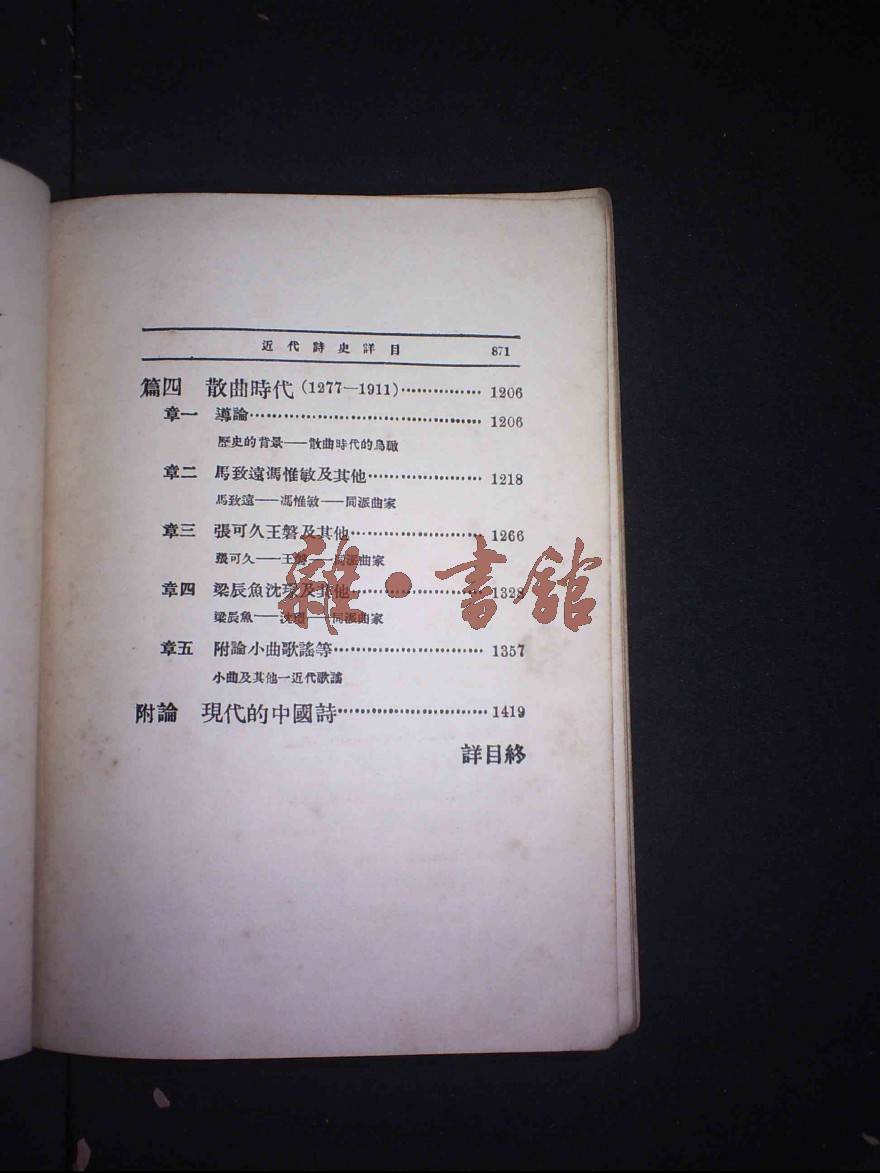 近代詩史詳目 871
篇四 散曲時代(1277—1911)⋯⋯⋯⋯⋯ 1206
章一 導論⋯⋯⋯⋯⋯⋯⋯⋯⋯⋯⋯⋯⋯ 1206
歷史的背景——散曲時代的鳥瞰
章二 馬致遠馮惟敏及其他⋯⋯⋯⋯⋯⋯⋯ 1218
馬致遠——馮惟敏——同派曲家
章三 張可久王磐及其他⋯⋯⋯⋯⋯⋯⋯⋯ 1266
張可久——王磐——同派曲家
章四 梁辰魚沈璟及其他⋯⋯⋯⋯⋯⋯⋯⋯ 1328
梁辰魚——沈璟——同派曲家
章五 附論小曲歌謠等⋯⋯⋯⋯⋯⋯⋯⋯⋯ 1357
小曲及其他—近代歌謠
附論 現代的中國詩⋯⋯⋯⋯⋯⋯⋯⋯⋯ 1419
詳目終
雜·書館